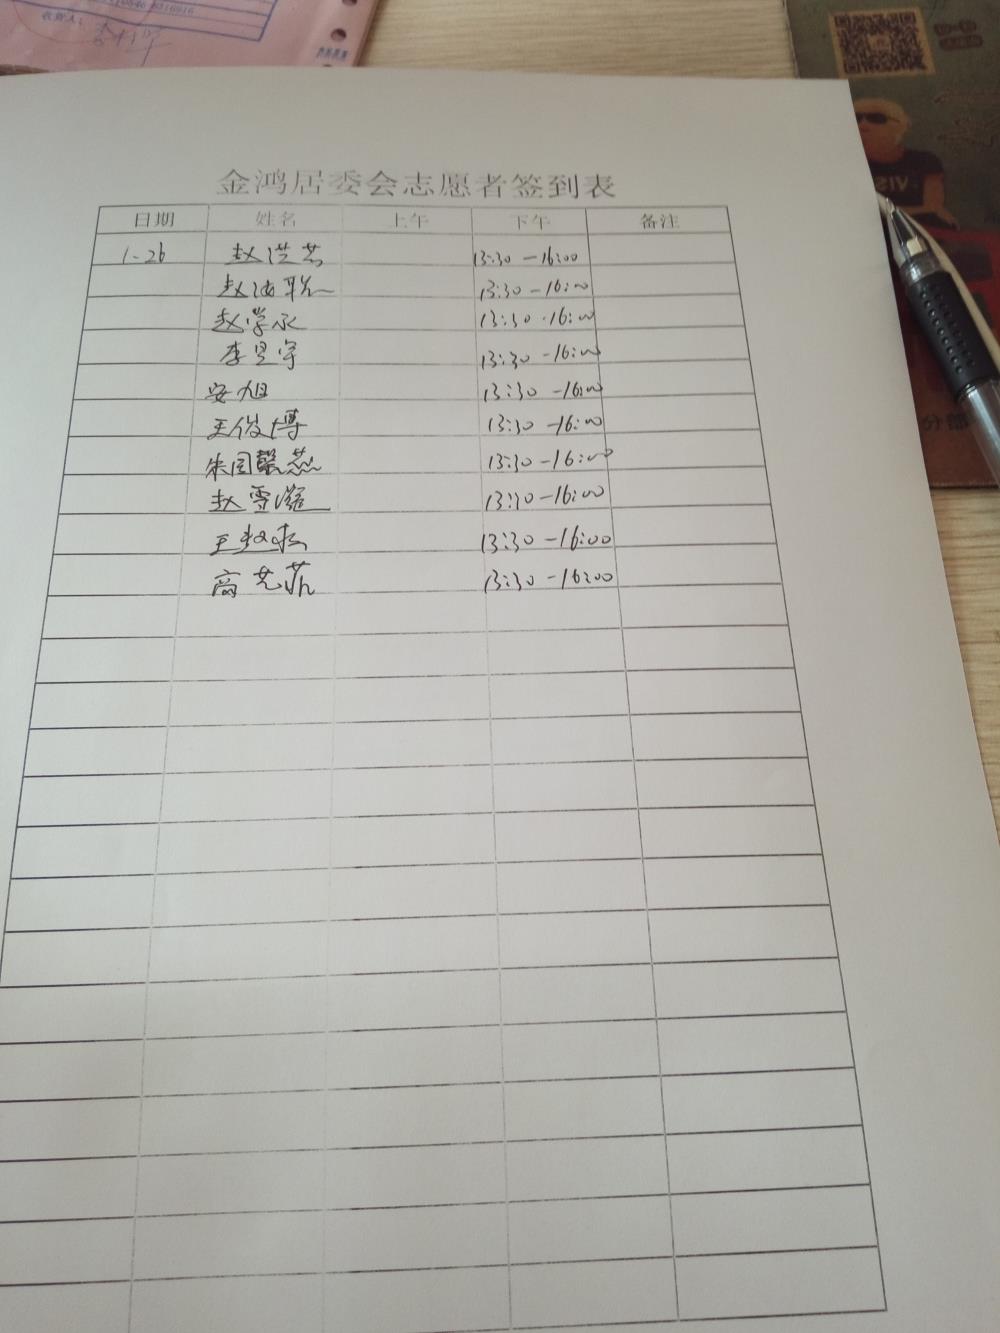 收货人:
金鸿居委会志愿者签到表
日期 姓名 上午 下午 备注
1-26 赵洪芸 13:30-16:00
赵海聪 13:30-16:00
赵学永 13:30-16:00
李昱宇 13:30-16:00
安旭 13:30-16:00
王俊博 13:30-16:00
朱国馨燕 13:30-16:00
赵雪 13:30-16:00
王 13:30-16:00
高艺菲 13:30-16:00
VISI
分部